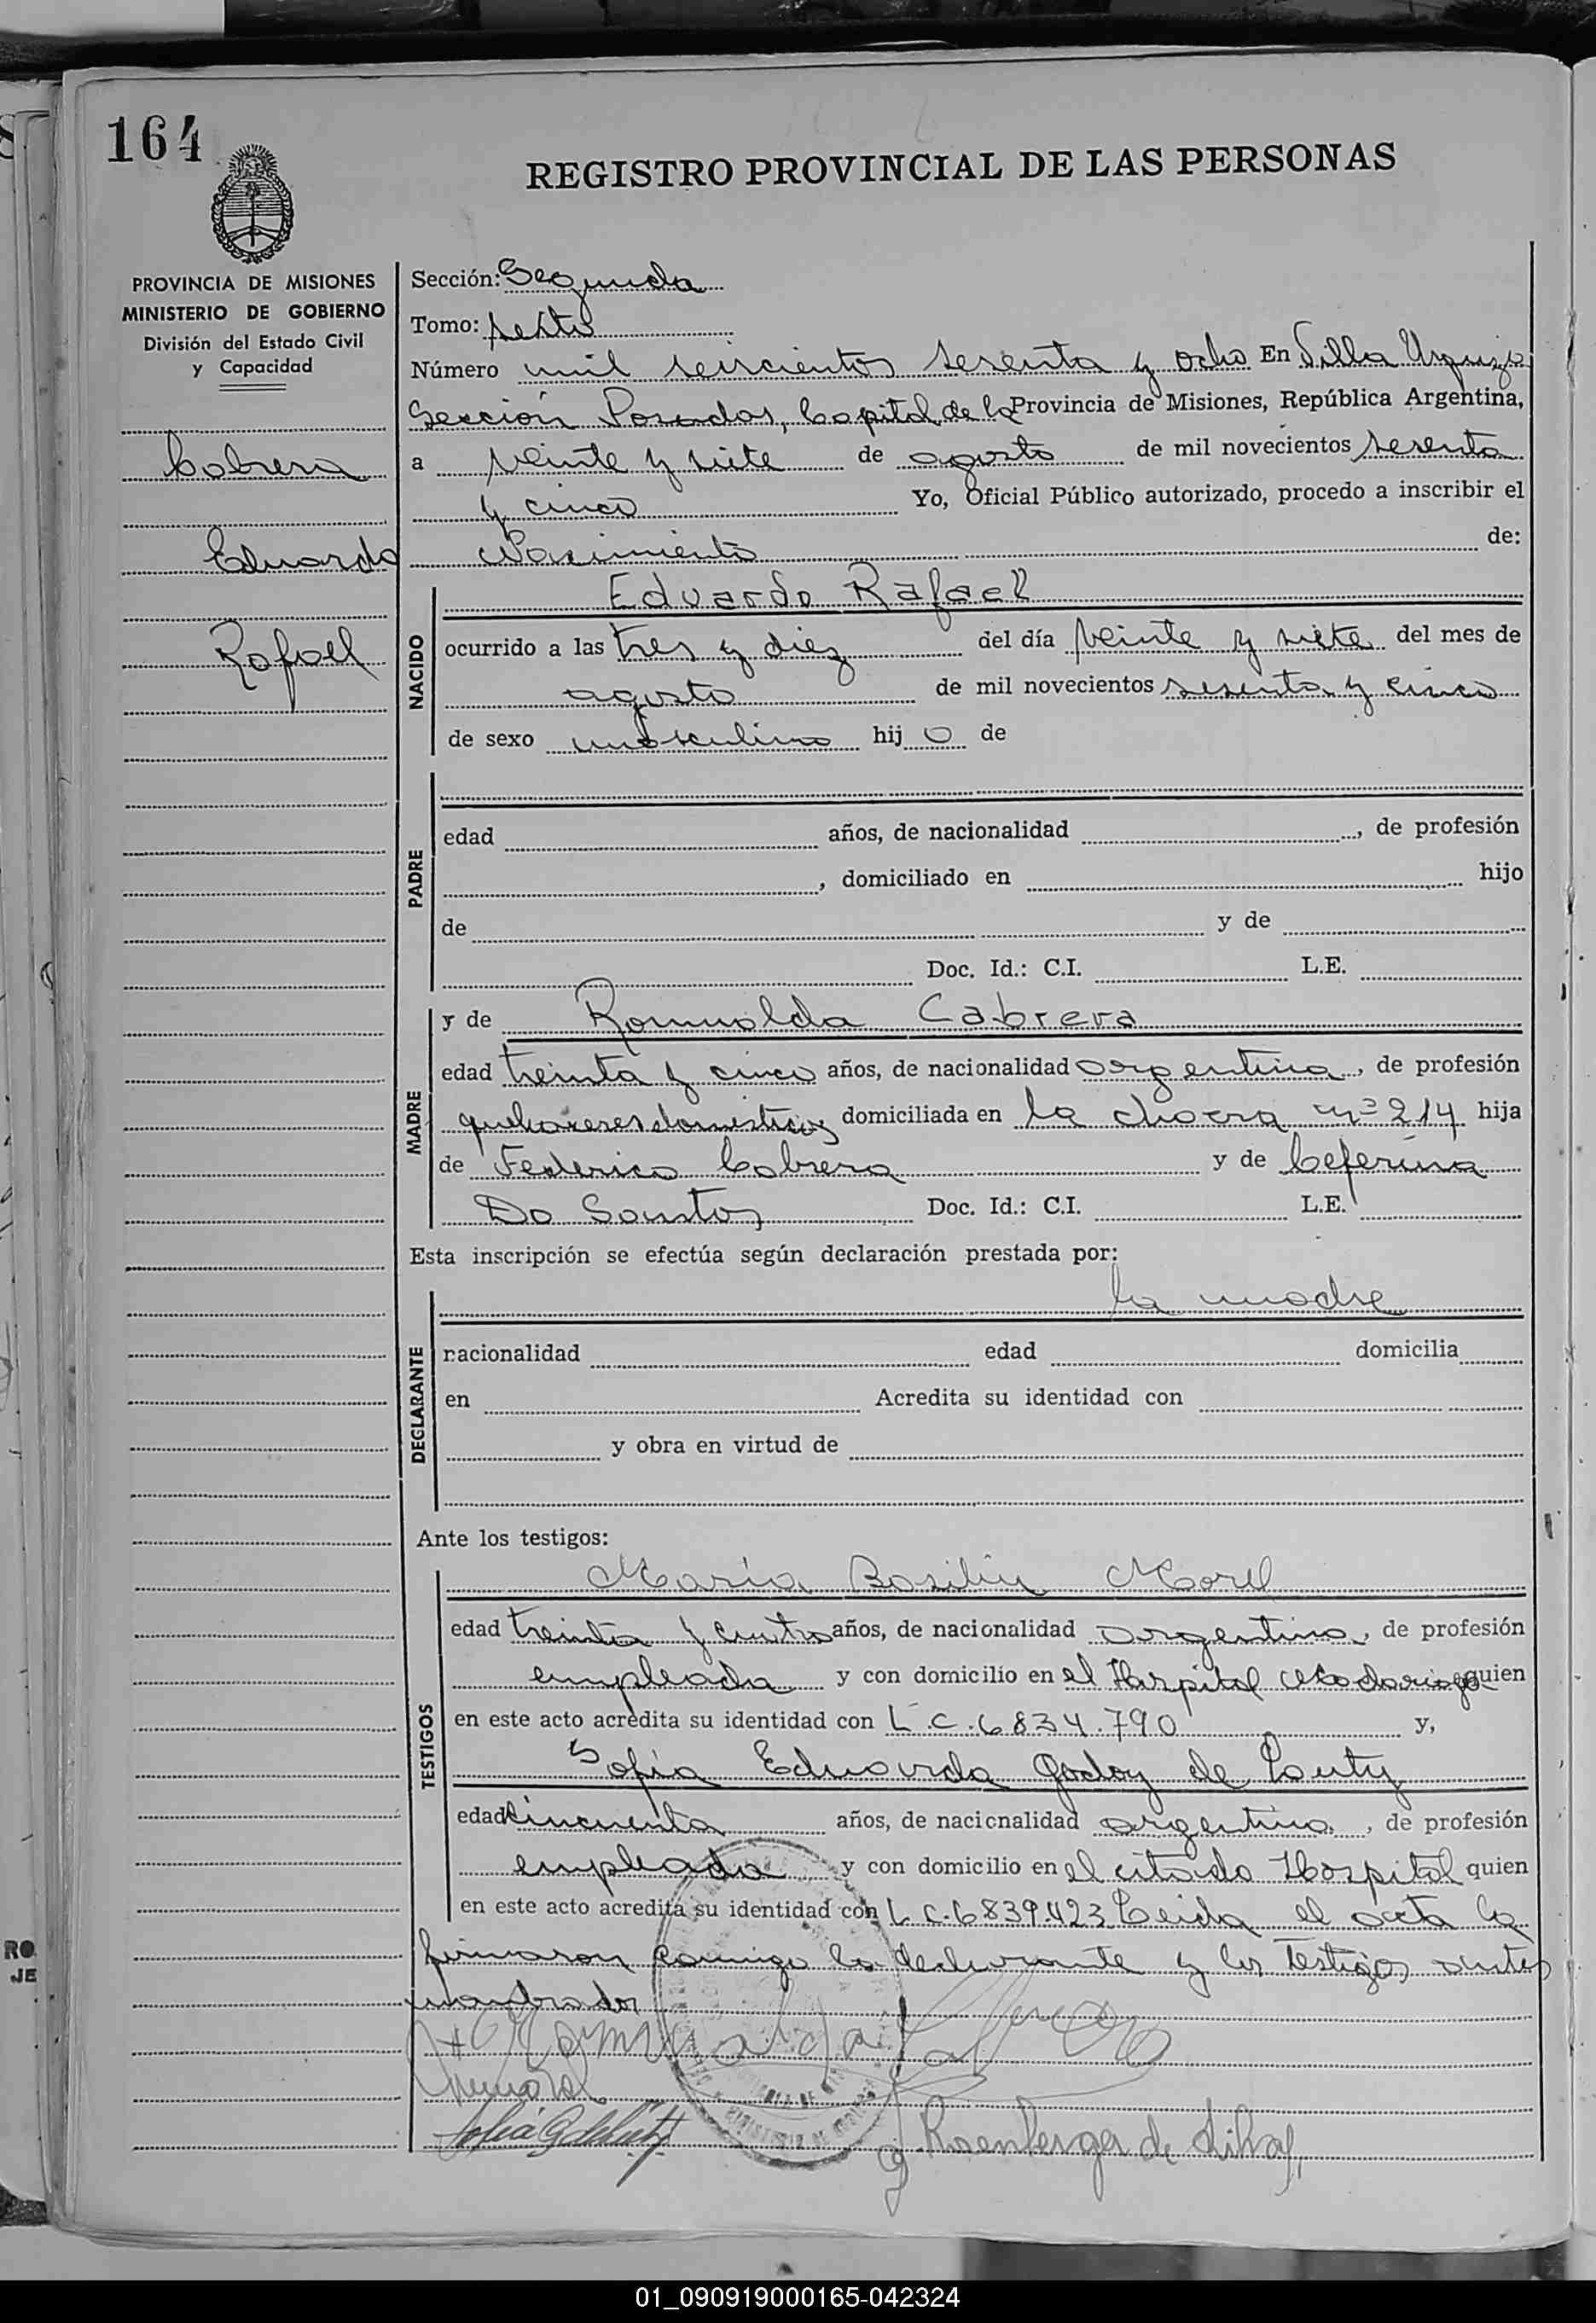 164
REGISTRO PROVINCIAL DE LAS PERSONAS
PROVINCIA DE MISIONES
MINISTERIO DE GOBIERNO
División del Estado Civil
y Capacidad
Cabrera
Eduardo
Rafael
Sección: Segunda
Tomo: sexto
Número mil seiscientos sesenta y ocho En Villa Urquiza
Sección Posadas, Capital de la Provincia de Misiones, República Argentina,
a veinte y siete de agosto de mil novecientos sesenta
y cinco Yo, Oficial Público autorizado, procedo a inscribir el
Nacimiento de:
NACIDO
Eduardo Rafael
ocurrido a las tres y diez del día veinte y siete del mes de
agosto de mil novecientos sesenta y cinco
de sexo masculino hijo de
PADRE
edad años, de nacionalidad , de profesión
, domiciliado en hijo
de y de
Doc. Id.: C.I. L.E.
MADRE
y de Romualda Cabrera
edad treinta y cinco años, de nacionalidad argentina, de profesión
quehaceres domesticos domiciliada en la chacra nº 214 hija
de Federico Cabrera y de Ceferina
Do Santos Doc. Id.: C.I. L.E.
Esta inscripción se efectúa según declaración prestada por:
DECLARANTE
la madre
nacionalidad edad domicilia
en Acredita su identidad con
y obra en virtud de
Ante los testigos:
TESTIGOS
María Basilia Morel
edad treinta y cuatro años, de nacionalidad argentina, de profesión
empleada y con domicilio en el Hospital Madariaga quien
en este acto acredita su identidad con L.C. 6834.790 y,
Sofia Eduarda Godoy de Lauty
edad cincuenta años, de nacionalidad argentina, de profesión
empleada y con domicilio en el citado Hospital quien
en este acto acredita su identidad con L.C. 6839.423 Leida el acta la
firmaron conmigo la declarante y los Testigos antes
nombrados
Romualda Cabrera
Rosenberger de Silva
RO
JE
01_090919000165-042324